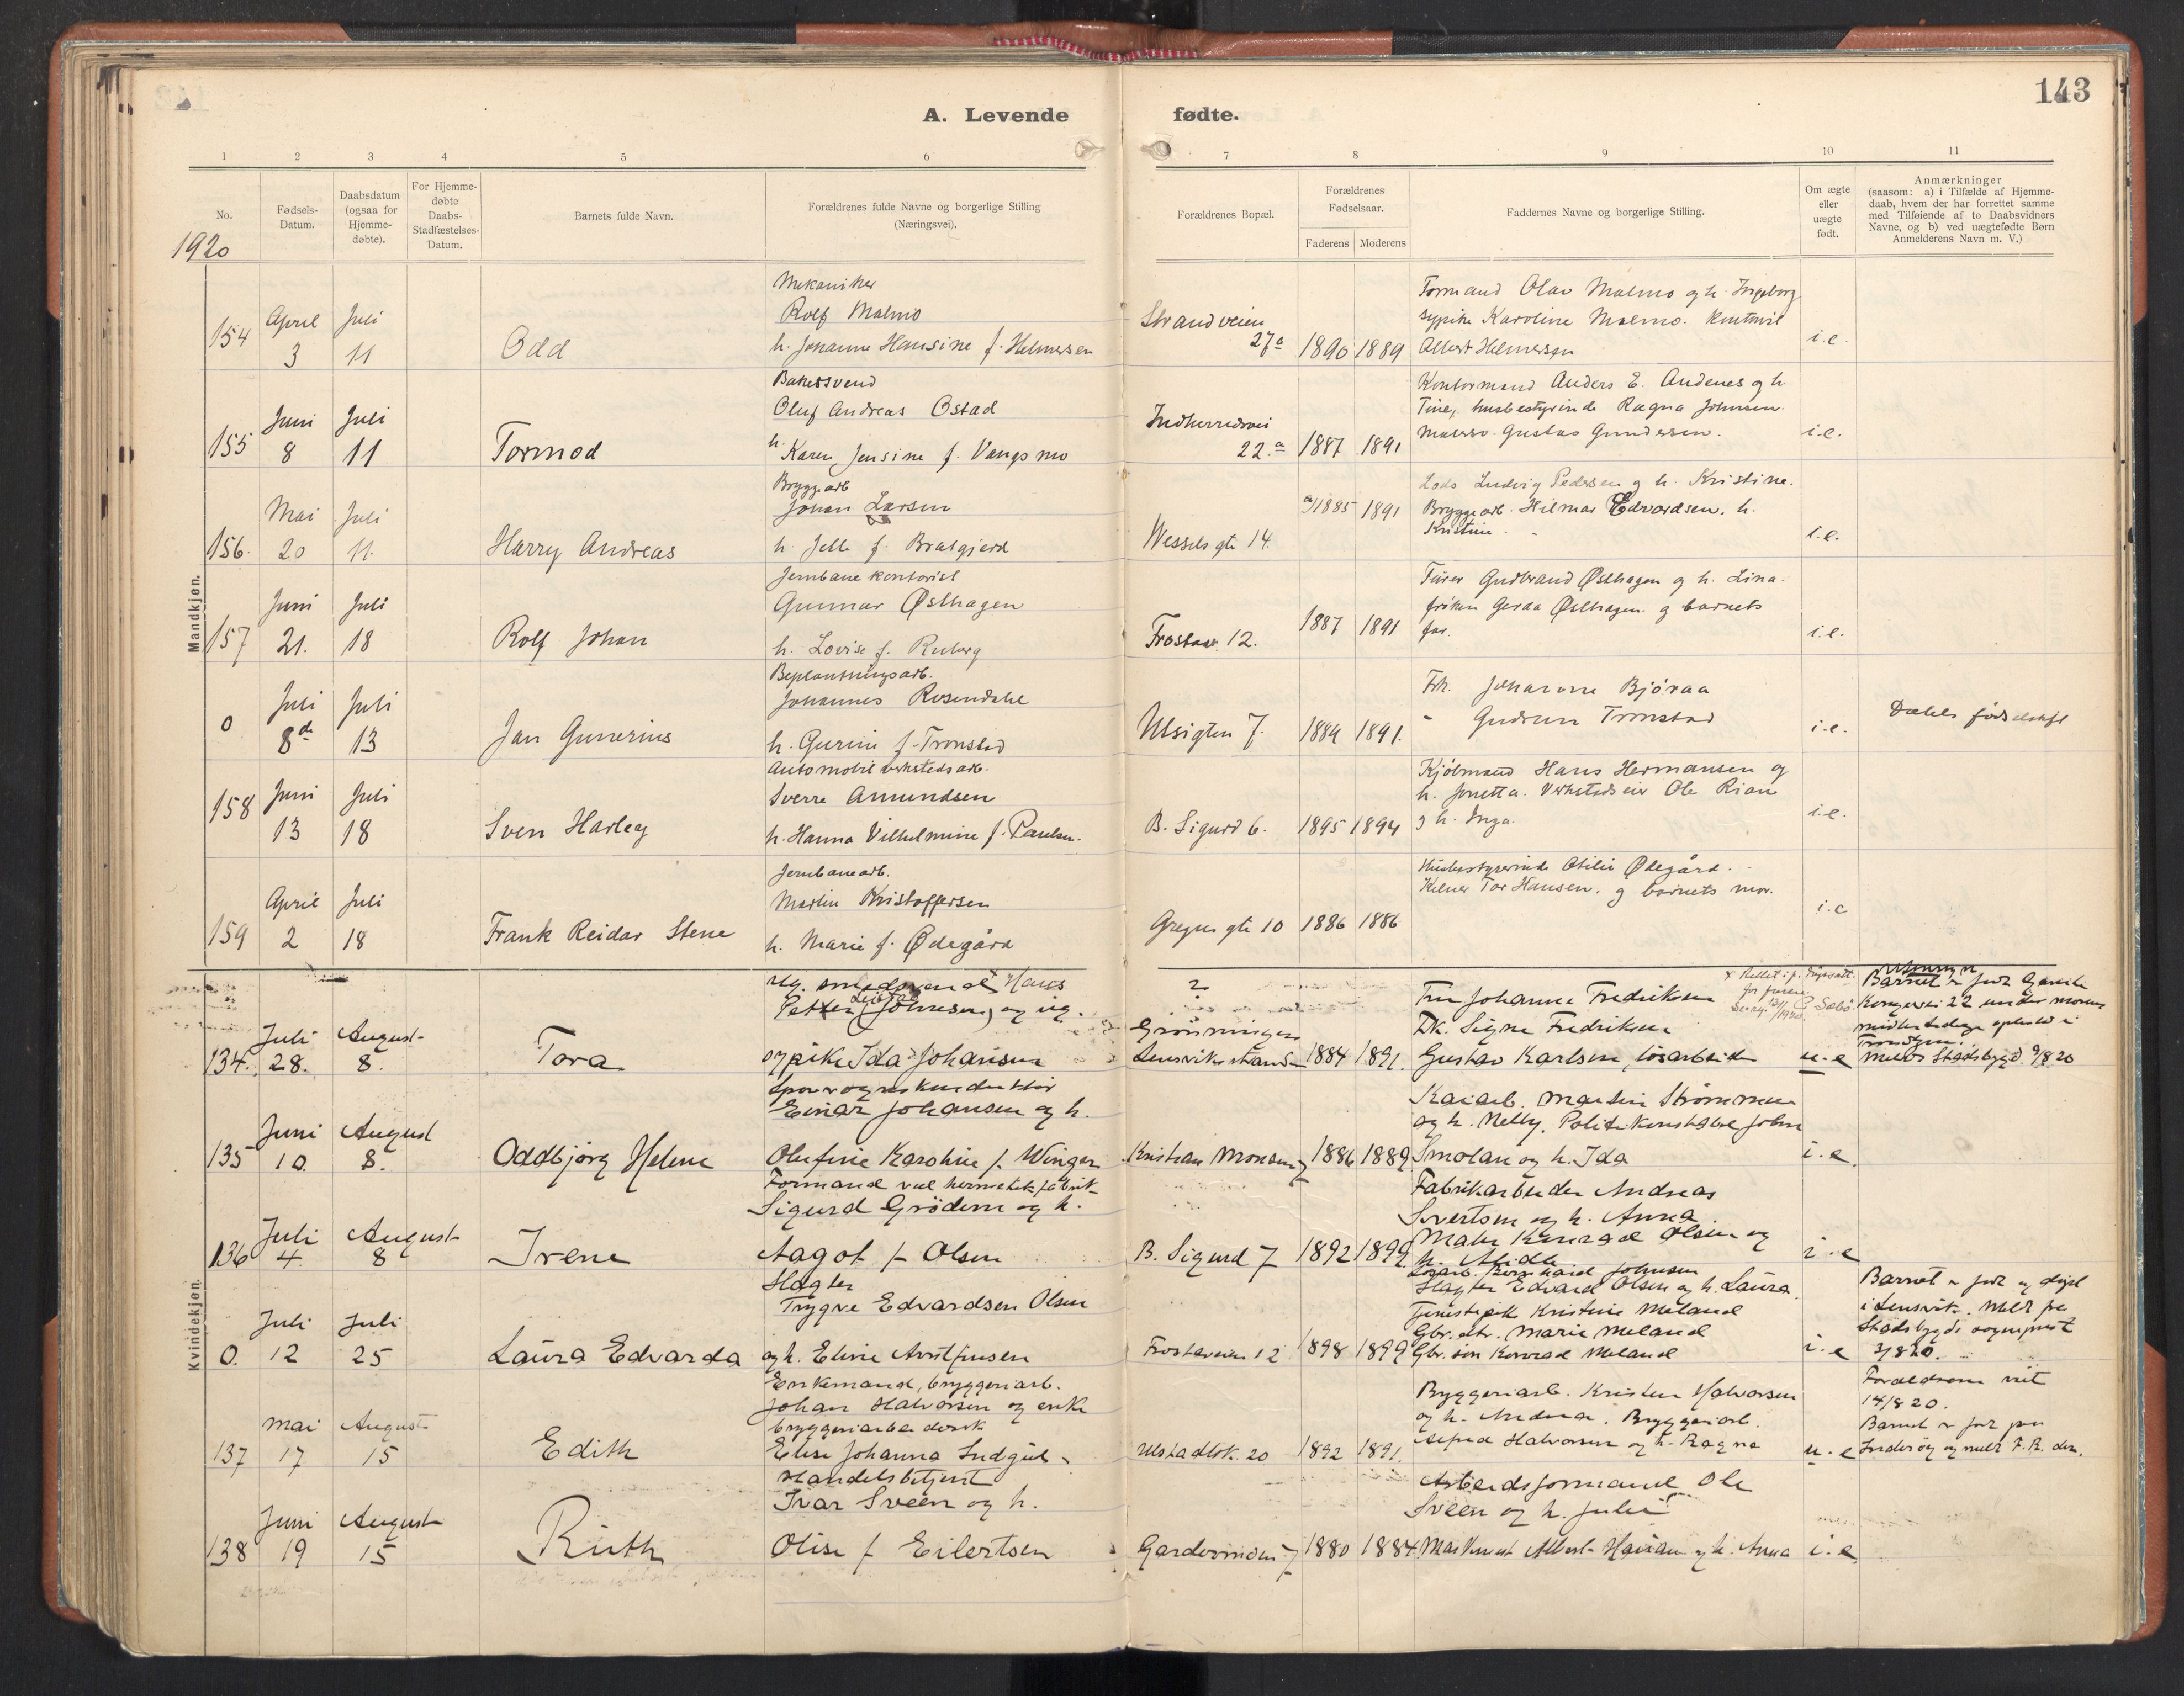 143
A. Levende fødte.
1 2 3 4 5 6 7 8 9 10 11
No.
Fødsels-
Datum.
Daabsdatum
(ogsaa for
Hjemme-
døbte).
For Hjemme-
døbte
Daabs-
Stadfæstelses-
Datum.
Barnets fulde Navn.
Forældrenes fulde Navne og borgerlige Stilling
(Næringsvei).
Forældrenes Bopæl.
Forældrenes
Fødselsaar.
Faderens Moderens
Faddernes Navne og borgerlige Stilling.
Om ægte
eller
uægte
født.
Anmærkninger
(saasom: a) i Tilfælde af Hjemme-
daab, hvem der har forrettet samme
med Tilføiende af to Daabsvidners
Navne, og b) ved uægtefødte Børn
Anmelderens Navn m. V.)
1920
Mandkjøn.
154
April
3
Juli
11
Odd
Mekaniker
Rolf Malmo
h. Johanne Hansine f. Helmersen
Strandveien
27a
1890 1889
Formand Olav Malmo og h. Ingeborg
sypike Karoline Malmo.
Albert Helmersen
i.e.
155
Juni
8
Juli
11
Tormod
Bakersvend
Oluf Andreas Ostad
h. Karen Jensine f. Vangsmo
Indherredsvei
22.a
1887 1891
Kontormand Anders E. Andenes og h.
Tine, husbestyrinde Ragna Johnsen.
Malersv. Gustav Gundersen.
i.e.
156.
Mai
20
Juli
11.
Harry Andreas
Bryggearb
Johan Larsen
h. f. Bratgjerd
Wessels gt 14.
1885 1891
Ludvig Pedersen og h. Kristine.
Bryggearb. Hilmar Edvardsen. h.
Kristine.
i.e.
157
Juni
21.
Juli
18
Rolf Johan
Jernbane kontorist
Gunnar Østhagen
h. Lovise f. Ruberg
Frostav. 12.
1887 1891
Gudbrand Østhagen og h. Lina.
frøken Gerda Østhagen. og barnets
far.
i.e.
0
Juli
8de
Juli
13
Jan Gunerius
Beplantningsarb.
Johannes Rosendahl
h. Gurine f. Tronstad
Utsigten 7.
1889 1891.
Frk. Johanne Björaa
" Gudrun Tronstad
i.e.
158
Juni
13
Juli
18
Sven Harley
Automobil verkstedsarb.
Sverre Amundsen
h. Hanna Vilhelmine f. Paulsen.
B. Sigurd 6.
1895 1894
Kjölmand Hans Hermansen og
h. Jonetta. Verkstedseier Ole Rian
og h. Inga.
i.e.
159
April
2
Juli
18
Frank Reidar Stene
Jernbanearb.
Martin Kristoffersen
h. Marie f. Ødegård
Gregus gt 10
1886 1886
Husbestyrerinde Otilie Ødegård.
Kelner Tor Hansen. og barnets mor.
i.e
Kvindekjøn.
134.
Juli
28.
August
8.
Tora
Ug. smedsvend Hans
Petter (Johnsen) og ug.
sypike Ida Johansen
?
Grönningen
Lensvikstrand
1884 1891.
Fru Johanne Fredriksen
Frk. Signe Fredriksen
Gustav Karlsen, lösarbeider
u.e
Barnet er født Gamle
Kongevei 22 under morens
midlertidige ophold i
Trondhjem.
Meldt Stadsbygd 9/8 20
135
Juni
10.
August
8.
Oddbjörg Helene
Sporvognskonduktör
Einar Johansen og h.
Olufine Karoline f. Winger
Kristian Monsens g 7
1886 1889
Kaiarb. Martin Strömmen
og h. Nelly. Politikonstabel Johan
Smolan og h. Ida
i.e.
136
Juli
4
August
8
Irene
Formand ved hermetikfabrik
Sigurd Grödem og h.
Aagot f. Olsen
B. Sigurd 7
1892 1892
Fabrikarbeider Andreas
Sivertsen og h. Anna
Maler Olsen og
i.e
0.
Juli
12
Juli
25
Laura Edvarda
Slagter
Trygve Edvardsen Olsen
og h. Eline Arntsen
Frostaveien 12
1898 1899
Lösarb. Bernhard Johnsen
Slagter Edvard Olsen og h. Laura.
Tjenestepik Kristine Meland
Gbr.dtr. Marie Meland
Gbr. sön Konrad Meland
i.e
Barnet er født og døpt
i Lensvik. Meldt fra
Stadsbygds sogneprest
3/8 20.
137
Mai
17
August
15
Edith
Enkemand, bryggeriarb.
Johan Halvorsen og enke
bryggeriarbeiderske
Elise Johanna Indgul
Ulstadløk. 20
1892 1891.
Bryggeriarb. Kristen Halvorsen
og h. Andrea. Bryggeriarb.
Alfred Halvorsen og h. Ragna
u.e
Forældrene viet
14/8 20.
Barnet er født paa
Inderöy og meldt
138
Juni
19
August
15
Ruth
Handelsbetjent
Ivar Sveen og h.
Olise f Eilertsen
Gardermoen 7
1880 1884
Arbeidsformand Ole
Sveen og h. Julie
Maskinist Albert Hansen og h. Anna
i.e